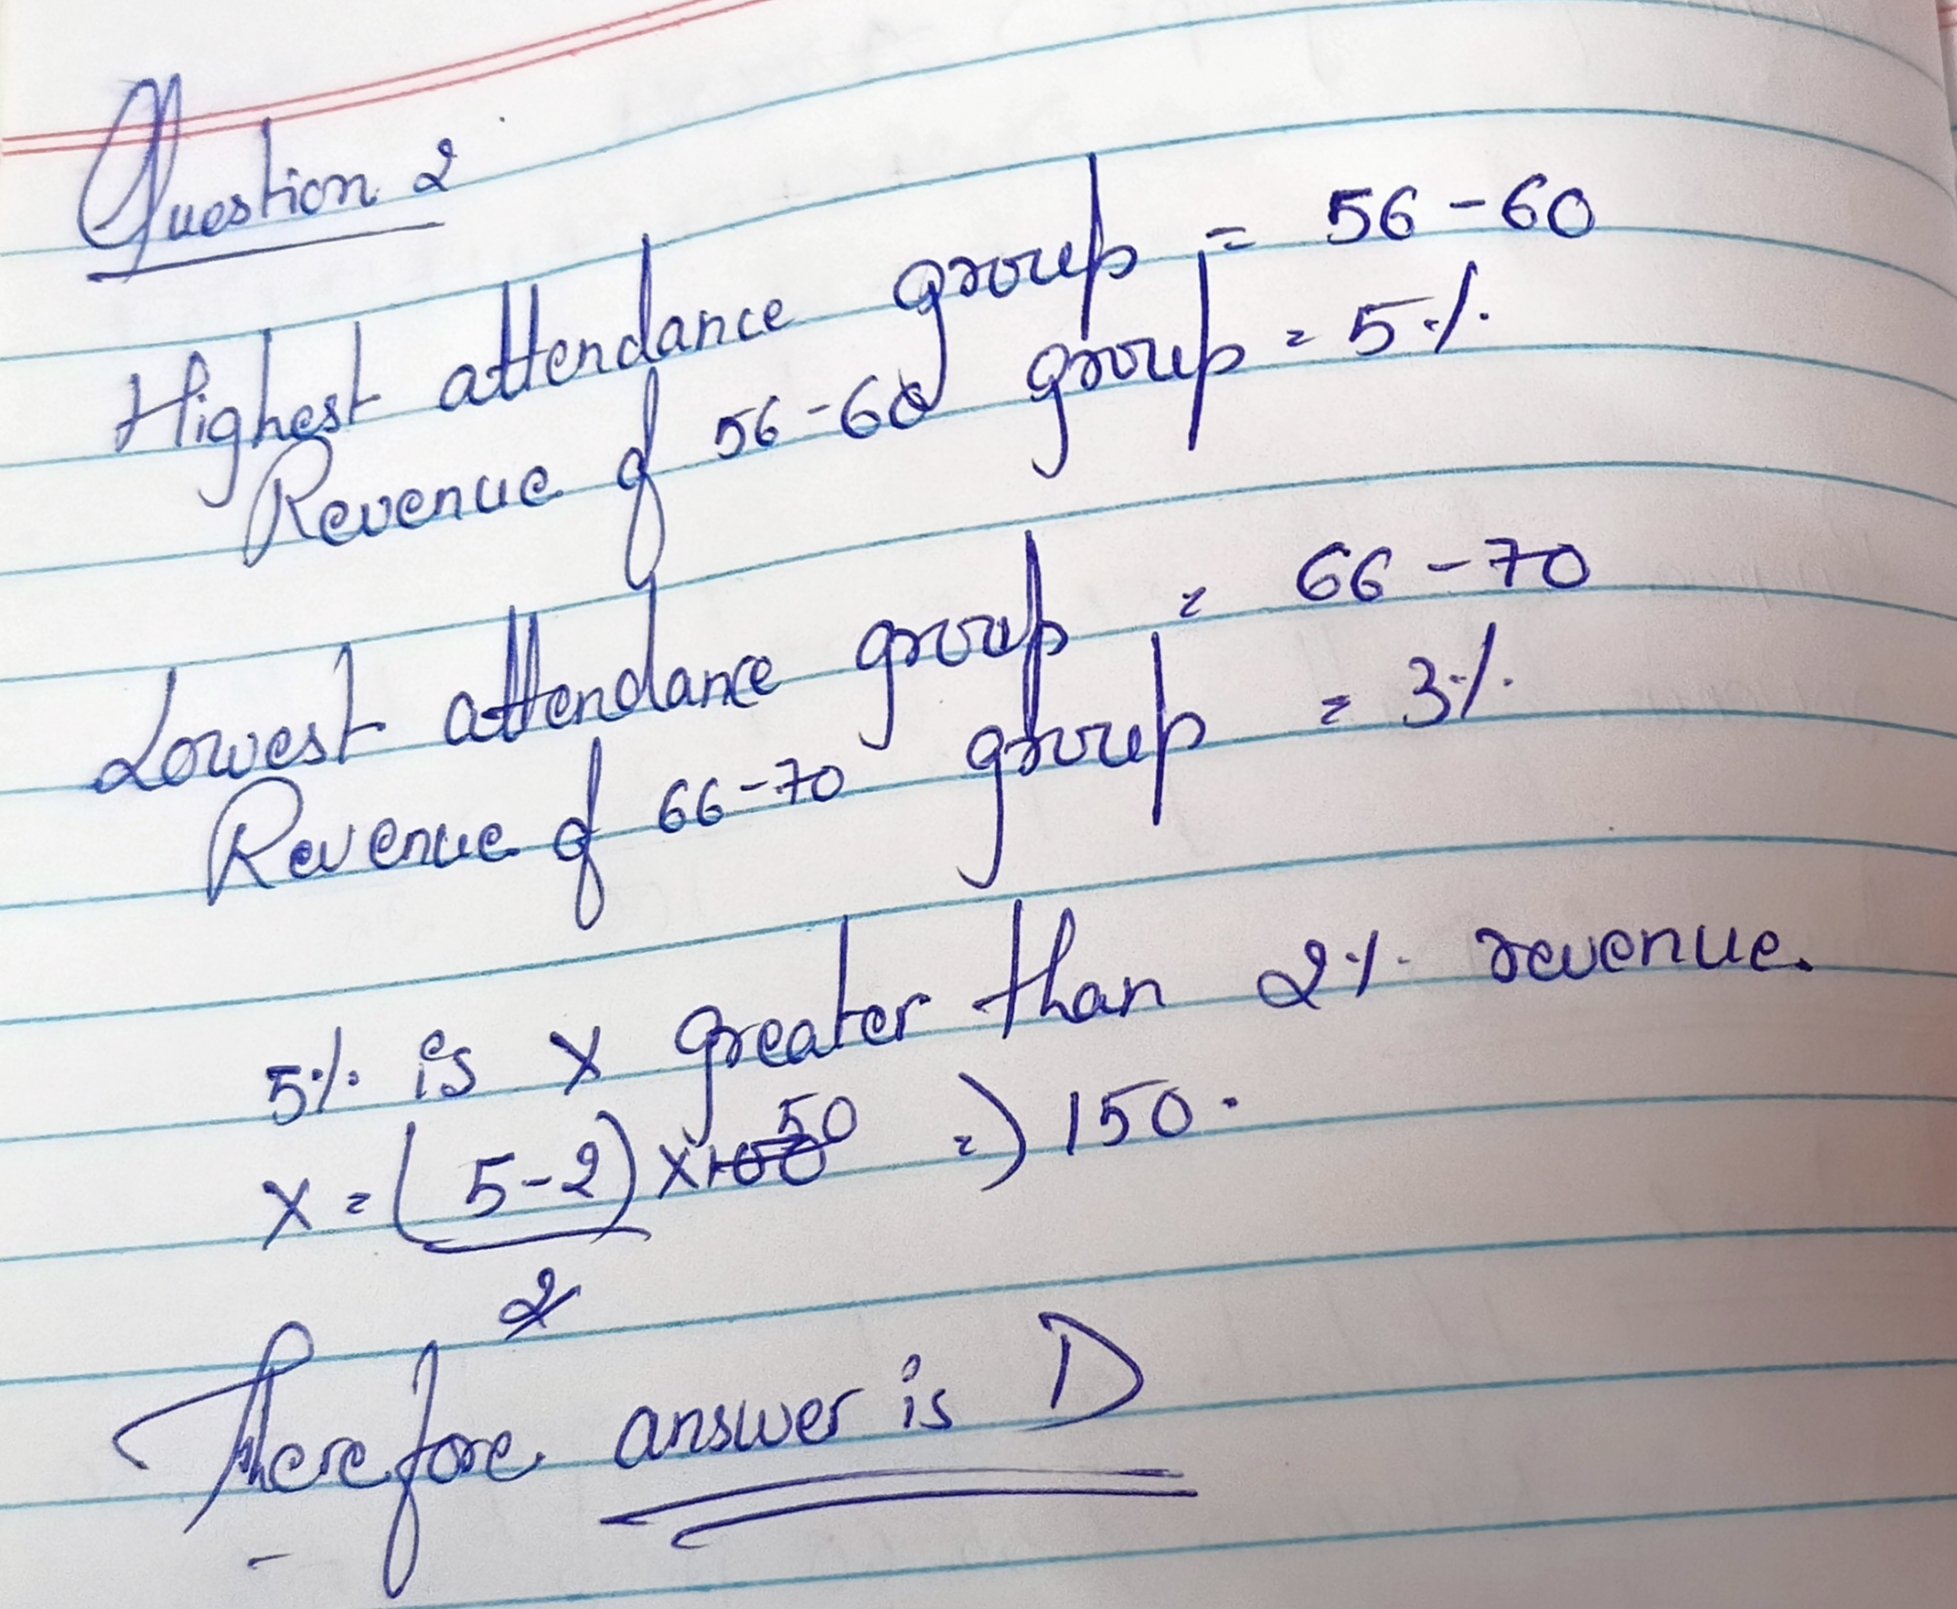 Question 2
Highest attendance group = 56-60
Revenue of 56-60 group = 5%
Lowest attendance group = 66-70
Revenue of 66-70 group = 3%
5% is x greater than 2% revenue.
x = (5-2) x 100 50 => 150.
2
Therefore answer is D